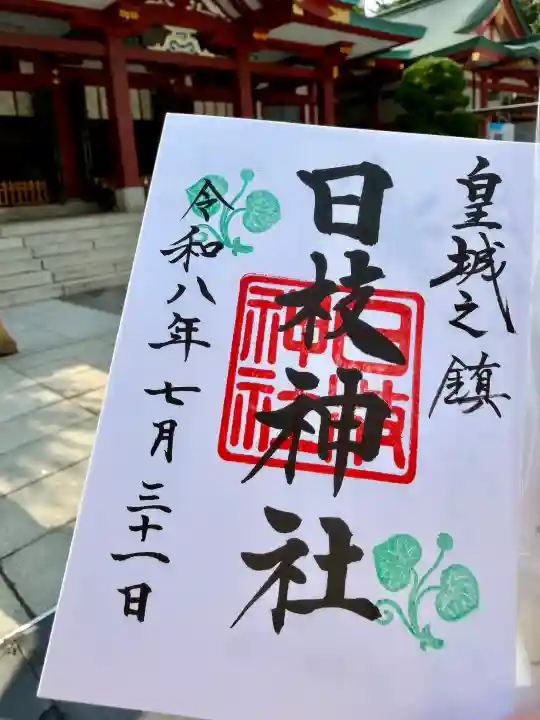 皇城之鎮
日枝神社
日枝神社
令和八年七月三十一日